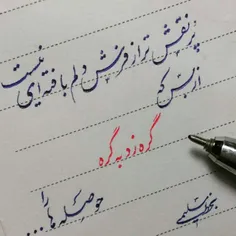 پر نقش تر از فرش دلم بافته‌ای نیست
از بس که
گره زد به گره
حوصله ها را...
بخط